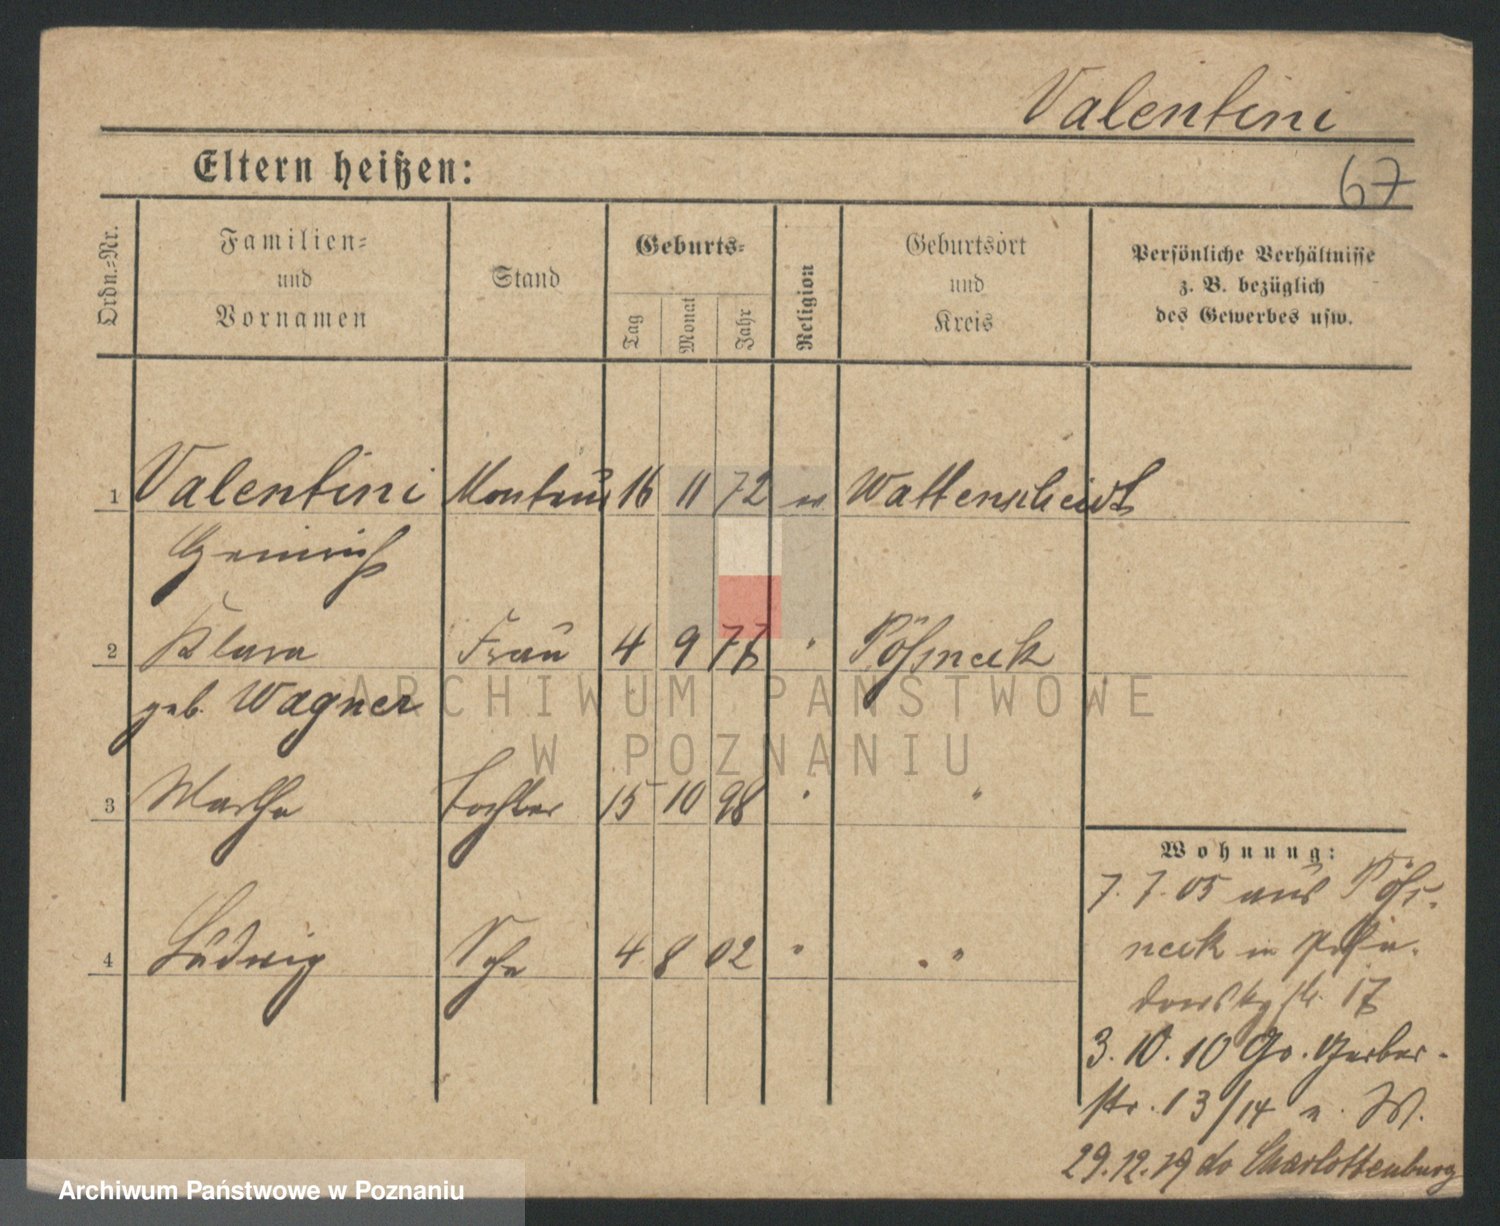 Valentini
Eltern heißen:
67
Ordn.-Nr.
Familien-
und
Vornamen
Stand
Geburts-
Tag
Monat
Jahr
Religion
Geburtsort
und
Kreis
Persönliche Verhältnisse
z. B. bezüglich
des Gewerbes usw.
1 Valentini Monteur 16 11 72 ev Wattenscheidt
Heinrich
2 Klara Frau 4 9 77 " Pößneck
geb. Wagner
ARCHIWUM PAŃSTWOWE
W POZNANIU
3 Martha Tochter 15 10 98 " "
4 Ludwig Sohn 4 8 02 " "
Wohnung:
7. 7. 05 aus Pößs-
neck in
str. 17
3. 10. 10 Gr. Gerber-
str. 13/14 n. W.
29.12.19 do Charlottenburg
Archiwum Państwowe w Poznaniu